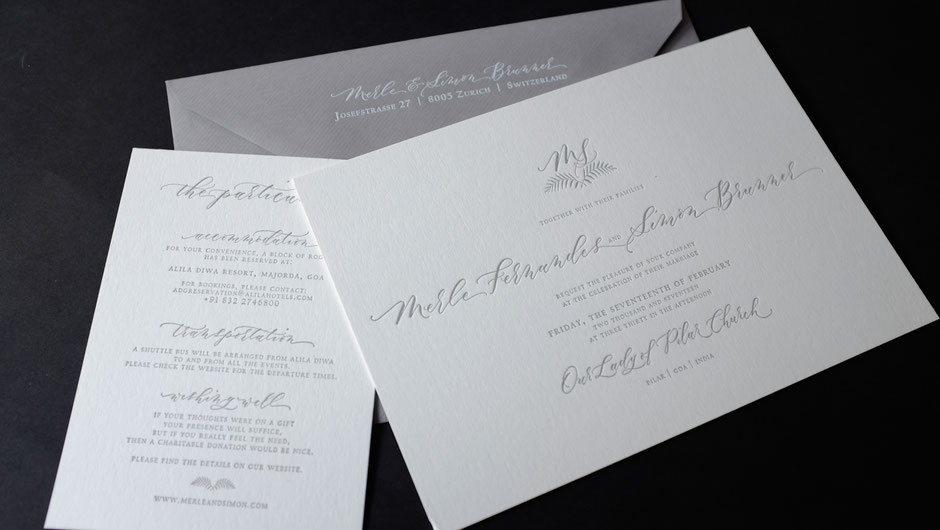 Merle & Simon Brunner
Josefstrasse 27 | 8005 Zurich | Switzerland
MS
TOGETHER WITH THEIR FAMILIES
Merle Fernandes AND Simon Brunner
REQUEST THE PLEASURE OF YOUR COMPANY
AT THE CELEBRATION OF THEIR MARRIAGE
FRIDAY, THE SEVENTEENTH OF FEBRUARY
TWO THOUSAND AND SEVENTEEN
AT THREE THIRTY IN THE AFTERNOON
Our Lady of Pilar Church
PILAR | GOA | INDIA
the
accommodation
FOR YOUR CONVENIENCE, A BLOCK OF
HAS BEEN RESERVED AT:
ALILA DIWA RESORT, MAJORDA, GOA
FOR BOOKINGS, PLEASE CONTACT:
ADGRESERVATION@ALILAHOTELS.COM
+91 832 2746800
transportation
A SHUTTLE BUS WILL BE ARRANGED FROM ALILA DIWA
TO AND FROM ALL THE EVENTS.
PLEASE CHECK THE WEBSITE FOR THE DEPARTURE TIMES.
wishing well
IF YOUR THOUGHTS WERE ON A GIFT
YOUR PRESENCE WILL SUFFICE,
BUT IF YOU REALLY FEEL THE NEED,
THEN A CHARITABLE DONATION WOULD BE NICE.
PLEASE FIND THE DETAILS ON OUR WEBSITE.
WWW.MERLEANDSIMON.COM